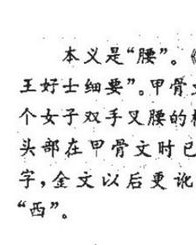 本义是“腰”。《
王好士细要”。甲骨文
个女子双手叉腰的
头部在甲骨文时已
字，金文以后更讹
“西”。